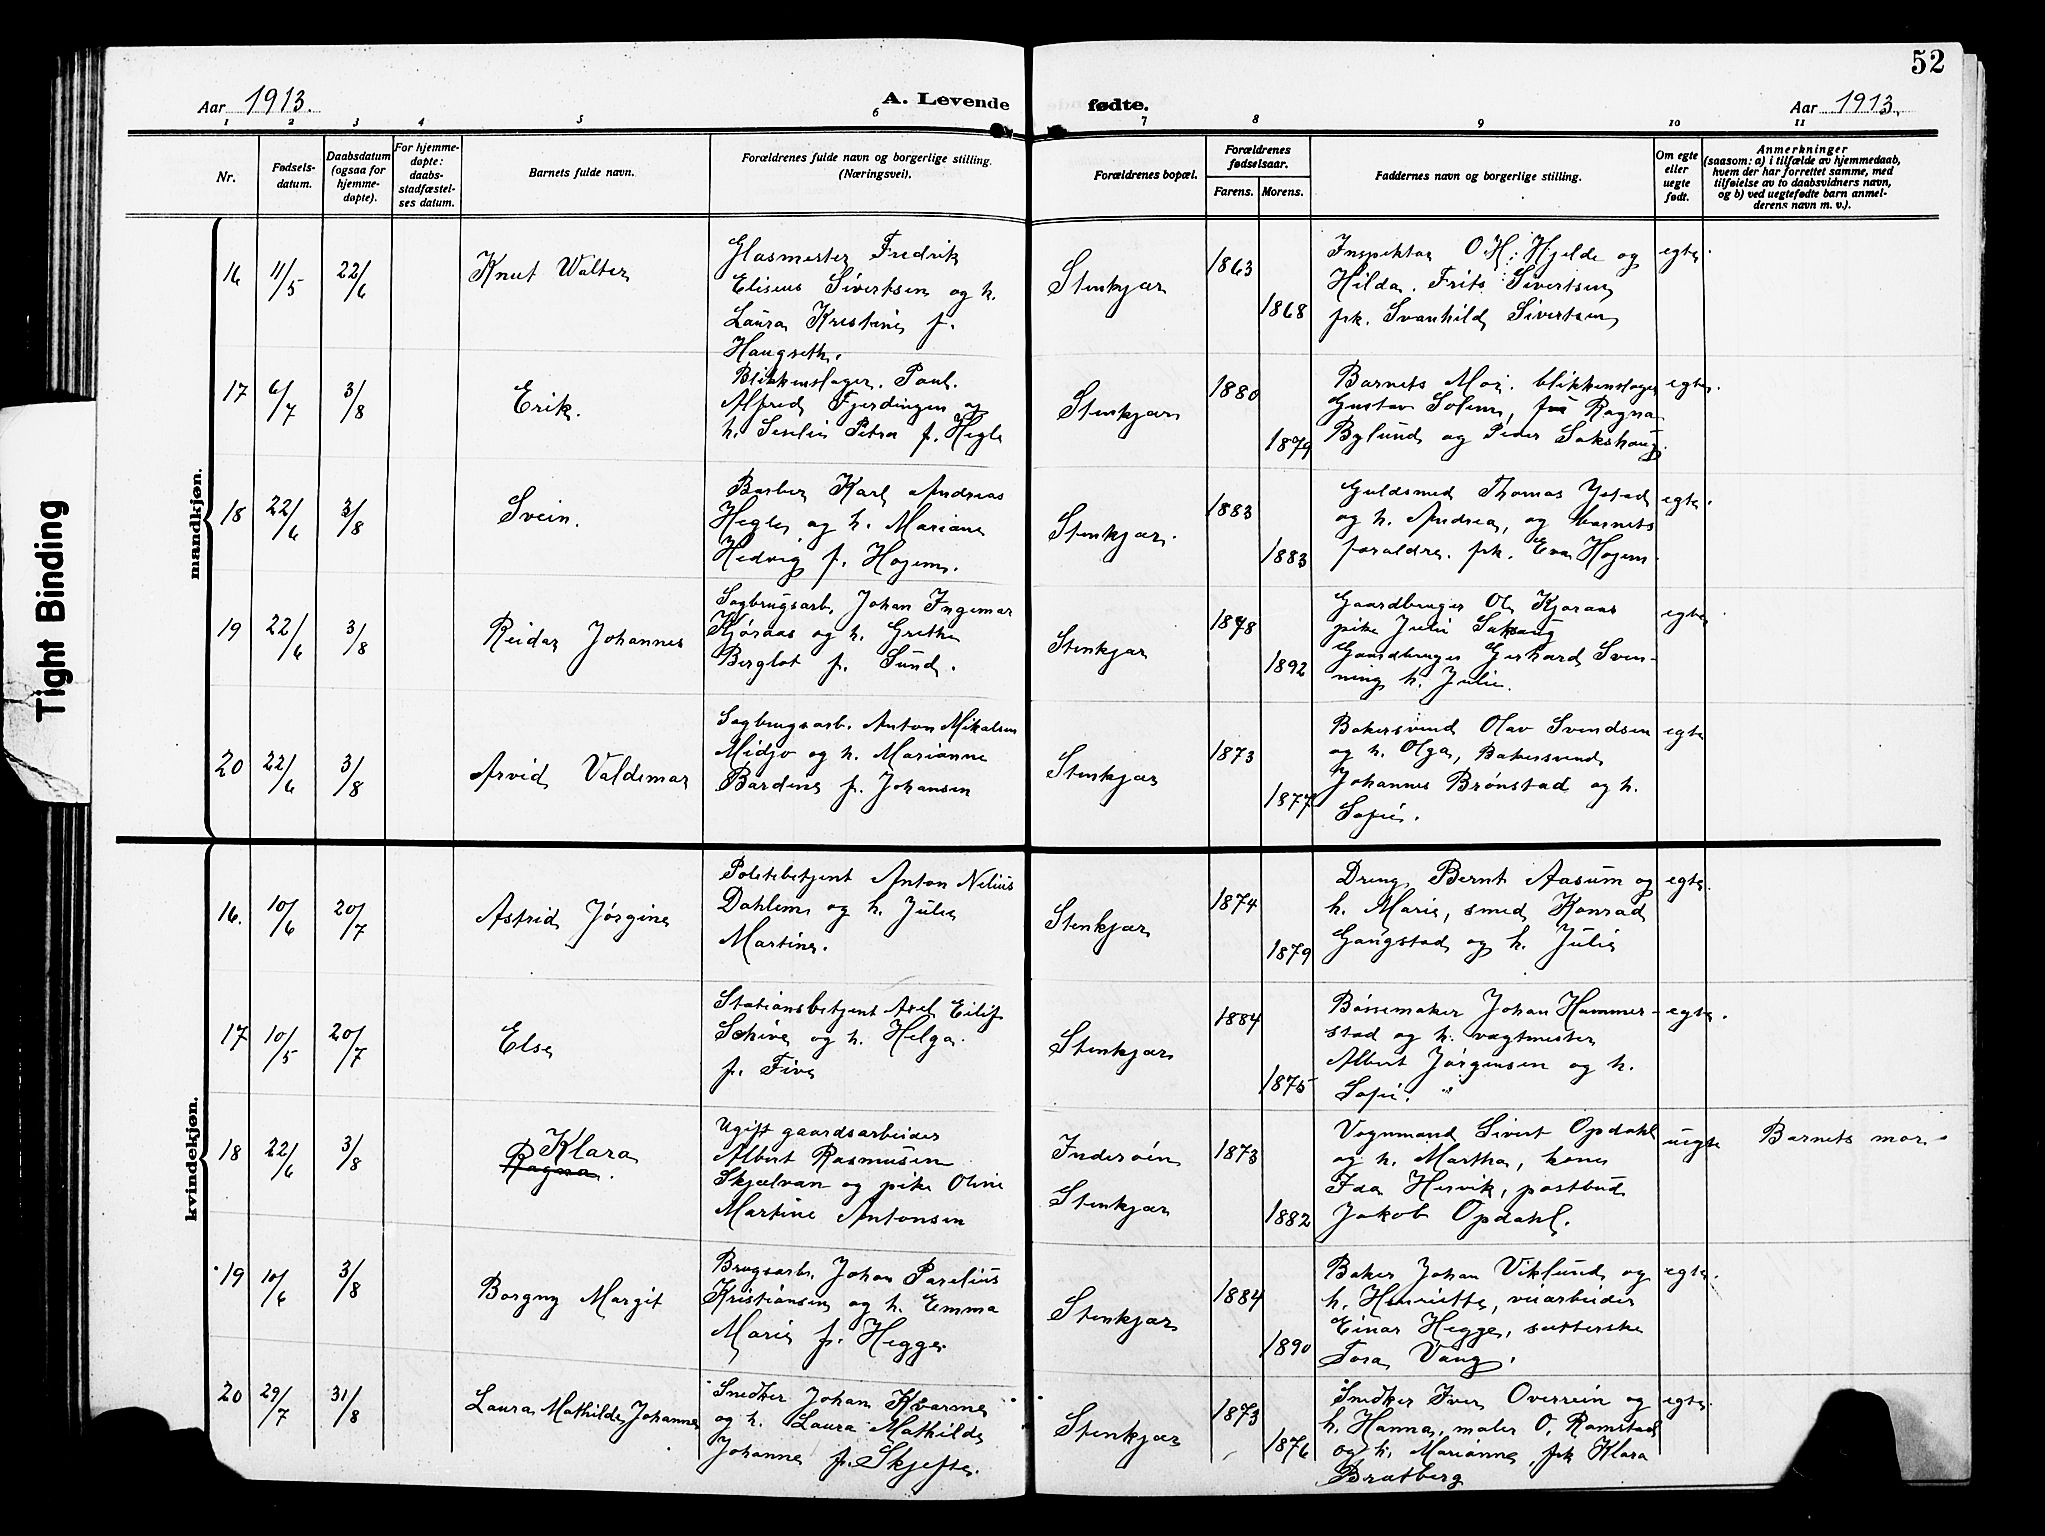 52
Aar 1913.
A. Levende
fødte.
Aar 1913.
1 2 3 4 5 6 7 8 9 10 11
Nr.
Fødsels-
datum.
Daabsdatum
(ogsaa for
hjemme-
døpte).
For hjemme-
døpte:
daabs-
stadfæstel-
ses datum.
Barnets fulde navn.
Forældrenes fulde navn og borgerlige stilling.
(Næringsvei).
Forældrenes bopæl.
Forældrenes
fødselsaar.
Farens. Morens.
Faddernes navn og borgerlige stilling.
Om egte
eller
uegte
født.
Anmerkninger
(saasom: a) i tilfælde av hjemmedaab,
hvem der har forrettet samme, med
tilføielse av to daabsvidners navn,
og b) ved uegtefødte barn anmel-
derens navn m. v.).
Tight Binding
mandkjøn.
16 11/5 22/6
Knut Walter
Glasmester Fredrik
Eliseus Sivertsen og h.
Laura Kristine f.
Haugseth.
Stenkjær
1863
1868
Inspektør O. H. Hjelde og
Hilda. Frits Sivertsen
frk. Svanhild Sivertsen
egte.
17 6/7 3/8
Erik.
Blikkenslager. Paul.
Alfred Fjerdingen og
h. Seselie Petra f. Hegle
Stenkjær
1880
1879
Barnets Mor. blikkenslager
Gustav Solem, Ragna
Bylund og Peder Sakshaug.
egte.
18 22/6 3/8
Svein.
Barber Karl Andreas
Hegle og h. Mariane
Hedvig f. Hojem.
Stenkjær.
1883
1883
Guldsmed Thomas Ystad
og h. Andrea, og barnets
forældre. frk. Eva Hojem.
egte.
19 22/6 3/8
Reidar Johannes
Sagbrugsarb. Johan Ingemar
Kjøraas og h. Grethe
Berglot f. Sund.
Stenkjær
1878
1892
Gaardbruger Ole Kjøraas
pike Julie
Gaardbruger Gerhard Sven-
ning h. Julie.
egte
20 22/6 3/8
Arvid Valdemar
Sagbrugsarb. Anton Mikalsen
Midjo og h. Marianne
Bardine f. Johansen
Stenkjær
1873
1877
Bakersvend Olav Svendsen
og h. Olga, Bakersvend
Johannes Brønstad og h.
Sofie.
egte
kvindekjøn.
16. 10/6 20/7
Astrid Jørgine
Politibetjent Anton Nelius
Dahlem og h. Julie
Martine.
Stenkjær
1874
1879
Dreng Bernt Aasum og
h. Marie, smed Konrad
Gaugstad og h. Julie
egte.
17 10/5 20/7
Else
Stationsbetjent Axel Eilif
Schive og h. Helga.
f. Five
Stenkjær
1884
1875
Bøssemaker Johan Hammer-
stad og h. vagtmester
Albert Jørgensen og h.
Sofie.
egte.
18 22/6 3/8
Klara
Ragna.
Ugift gaardsarbeider
Albert Rasmusen
Skjælvan og pike Oline
Martine Antonsen
Inderøen
Stenkjær
1873
1882
Vognmand Sivert Opdahl
og h. Martha, kone
Ida Hervik, postbud
Jakob Opdahl.
uegte
Barnets mor.
19 10/6 3/8
Borgny Margit
Brugsarb. Johan Parelius
Kristiansen og h. Emma
Marie f. Hegge.
Stenkjær
1884
1890
Baker Johan Viklund og
h. Henriette, veiarbeider
Einar Hegge,
Tora Vang.
egte.
20 29/7 31/8
Laura Mathilde Johanne
Snedker Johan Kvarme
og h. Laura Mathilde
Johanne f. Skjefte.
Stenkjær
1873
1876
Snedker Iver Overrein og
h. Hanna, maler O. Ramstad
og h. Marianne, frk Klara
Bratberg
egte.